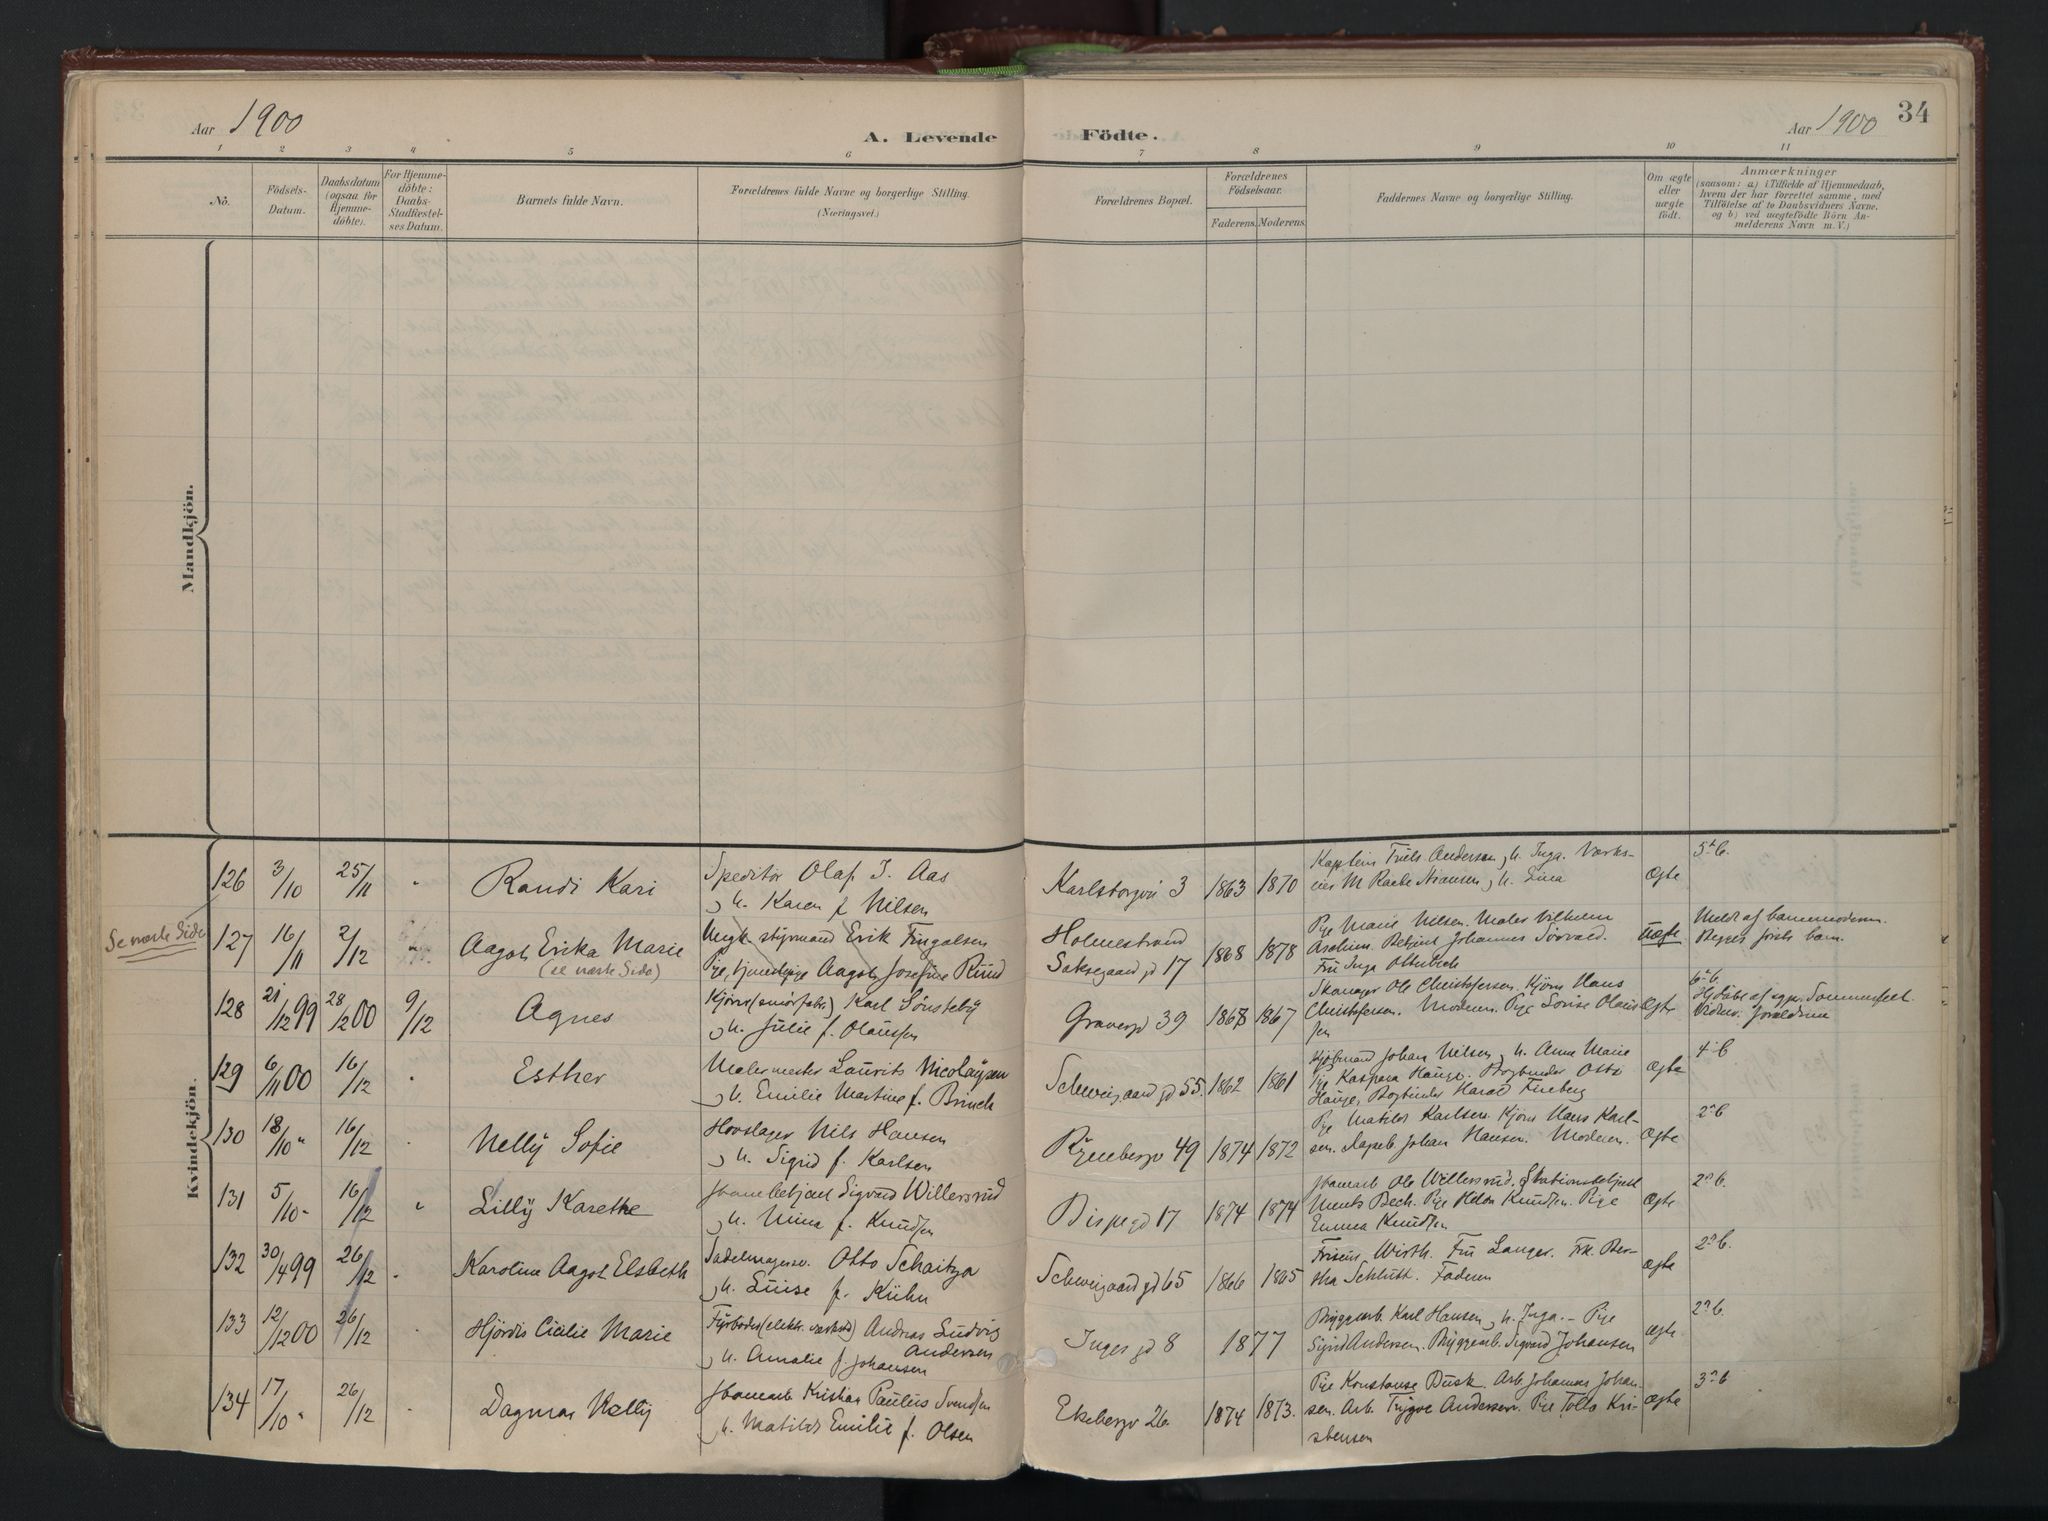 Aar 1900
A. Levende
Födte.
Aar 1900
34
1 2 3 4 5 6 7 8 9 10 11
No.
Födsels-
Datum.
Daabsdatum
(ogsaa for
Hjemme-
döbte).
For Hjemme-
döbte:
Daabs-
Stadfæstel-
ses Datum.
Barnets fulde Navn.
Forældrenes fulde Navne og borgerlige Stilling.
(Næringsvei.)
Forældrenes Bopæl.
Forældrenes
Födselsaar.
Faderens. Moderens.
Faddernes Navne og borgerlige Stilling.
Om ægte
eller
uægte
født.
Anmærkninger
(saasom: a) i Tilfælde af Hjemmedaab,
hvem der har forrettet samme, med
Tilföielse af to Daabsvidners Navne.
og b) ved uægtefödte Börn An-
melderens Navn m. V.)
Mandkjön.
Kvindekjön.
126 3/10 25/11
Randi Kari
Speditör Olaf J. Aas
h. Karen f. Nilsen
Karlsborgvei 3 1863 1870
Kaptein Andersen, h. Inga.
Ægte
Se næste Side
127 16/11 2/12
Aagot Erika Marie
(se næste Side)
Ungk. styrmand Erik Fingalsen
Pige, tjenestepige Aagot Josefine Rund
Holmestrand
Saksegaard gd 17 1868 1878
Pige Marie Nilsen. Maler Vilhelm
Johannes
Fru Inga Otterbech
uægte
Meldt af barnemoderen.
128 21/12 99 28/2 00 9/12
Agnes
Kjörer (smörfabr.) Karl Sönsteby
h. Julie f. Olaussen
Gravergd 39 1868 1867
Ole Christofersen. Kjörer Hans
Christofersen. Moderen. Pige Lovise Olaus-
sen
Ægte
6te b.
Hjdöbt af Sommerfelt.
Vidner. forældrene
129 6/11 00 16/12
Esther
Malermester Laurits Nicolaysen
h. Emilie Martine f. Brinch
Schweigaard gd 55. 1862 1861
Kjöbmand Johan Nilsen, h. Anne Marie
Pige Kaspara Hauge. Bogbinder Otto
Hauge, Bogbinder
Ægte
4 b
130 18/10 " 16/12
Nelly Sofie
Hovslager Nils Hansen
h. Sigrid f. Karlsen
Ryenbergv 49 1874 1872
Pige Matilde Karlsen. Kjörer Hans Karl-
sen. Johan Hansen. Moderen.
Ægte
2 b
131 5/10 - 16/12
Lilly Karethe
Jernbanebetjent Sigvard Willersrud
h. Mina f. Knudsen
Bispegd 17 1874 1874
Ole Willersrud, Stationsbetjent
Bech. Pige Knudsen. Pige
Emma Knudsen
Ægte
2 b.
132 30/4 99 26/12
Karoline Aagot Elsbeth
Sadelmagersv. Otto Schaitza
h. Luise f. Kühn
Schweigaard gd 65 1866 1865
Frisör Wirth. Fru Langer. Frk. Ber-
tha Schlütt. Faderen
Ægte
2 b.
133 12/12 00 26/12
Hjördis Cicilie Marie
Fyrböder (elektr. værksted) Andreas Ludvig
Andersen
h. Amalie f. Johansen
Ingesgd 8 1877
Bryggearb. Karl Hansen, h. Inga. - Pige
Sigrid Andersen. Bryggearb. Sigvard Johansen
Ægte
2 b.
134 17/10 " 26/12
Dagmar Nelly
Kristian Paulus Svendsen
h. Matilde Emilie f. Olsen
Ekebergv 26 1874 1873.
Pige Konstanse Busk. Arb. Johannes Johan-
sen. Arb. Trygve Andersen. Pige Kri-
stensen
Ægte
3 b